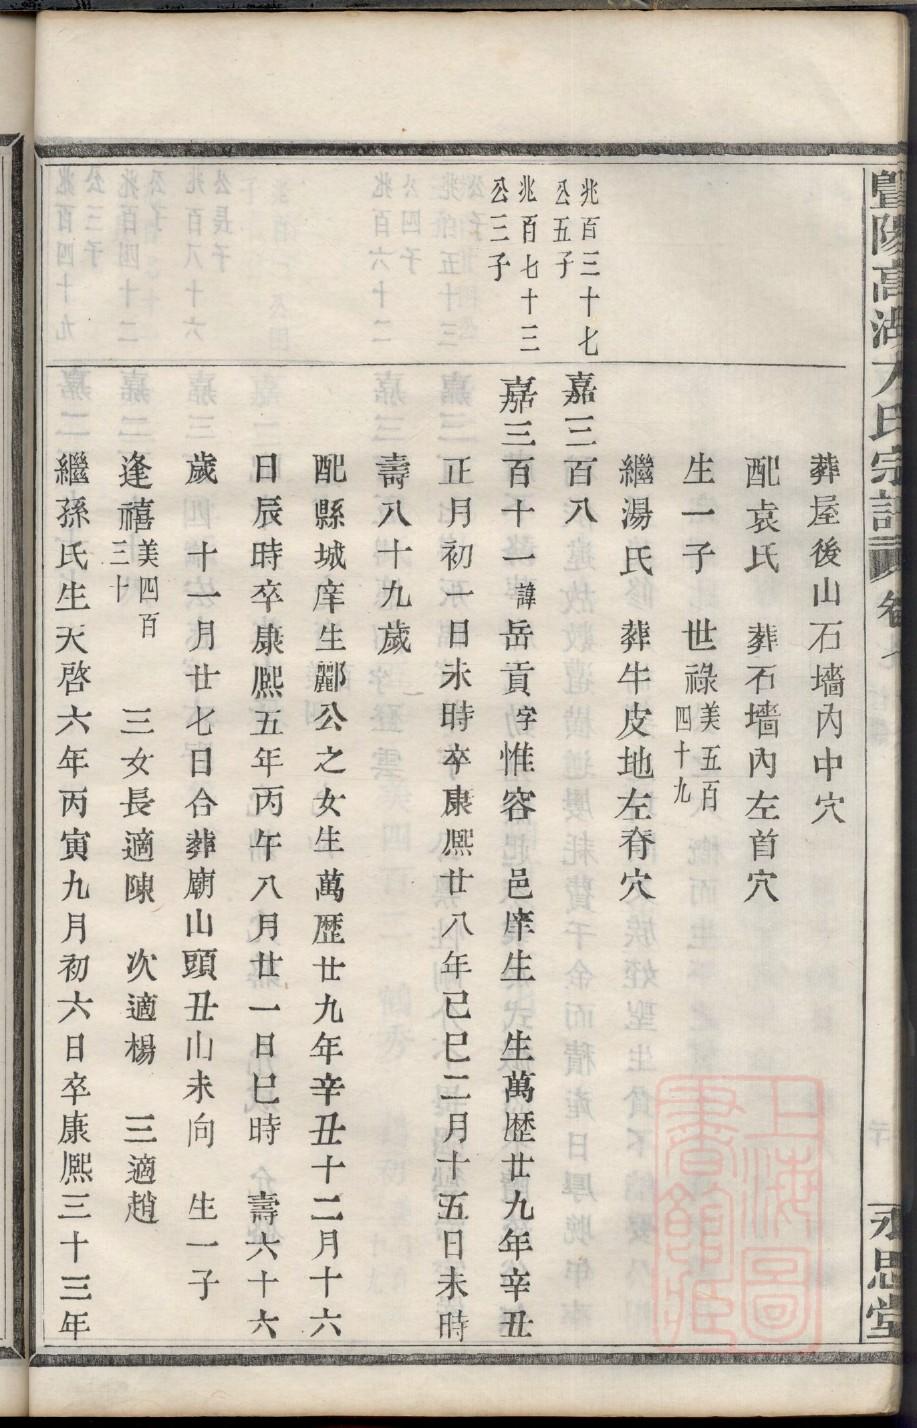 暨陽高湖 氏宗譜 卷
永思堂
葬屋後山石墻內中穴
配袁氏 葬石墻內左首穴
生一子 世祿美五百四十九
繼湯氏 葬牛皮地左脊穴
兆百三十七公五子
嘉三百八
兆百七十三公三子
嘉三百十一諱岳貢字惟容 邑庠生 生萬歷廿九年辛丑
正月初一日未時卒康熈廿八年己巳二月十五日未時
壽八十九歲
配縣城庠生酈公之女生萬歷廿九年辛丑十二月十六
日辰時卒康熈五年丙午八月廿一日巳時 壽六十六
歲 十一月廿七日合葬廟山頭丑山未向 生一子
逢禧美四百三十 三女長適陳 次適楊 三適趙
繼孫氏生天啓六年丙寅九月初六日卒康熈三十三年
上海圖書館藏